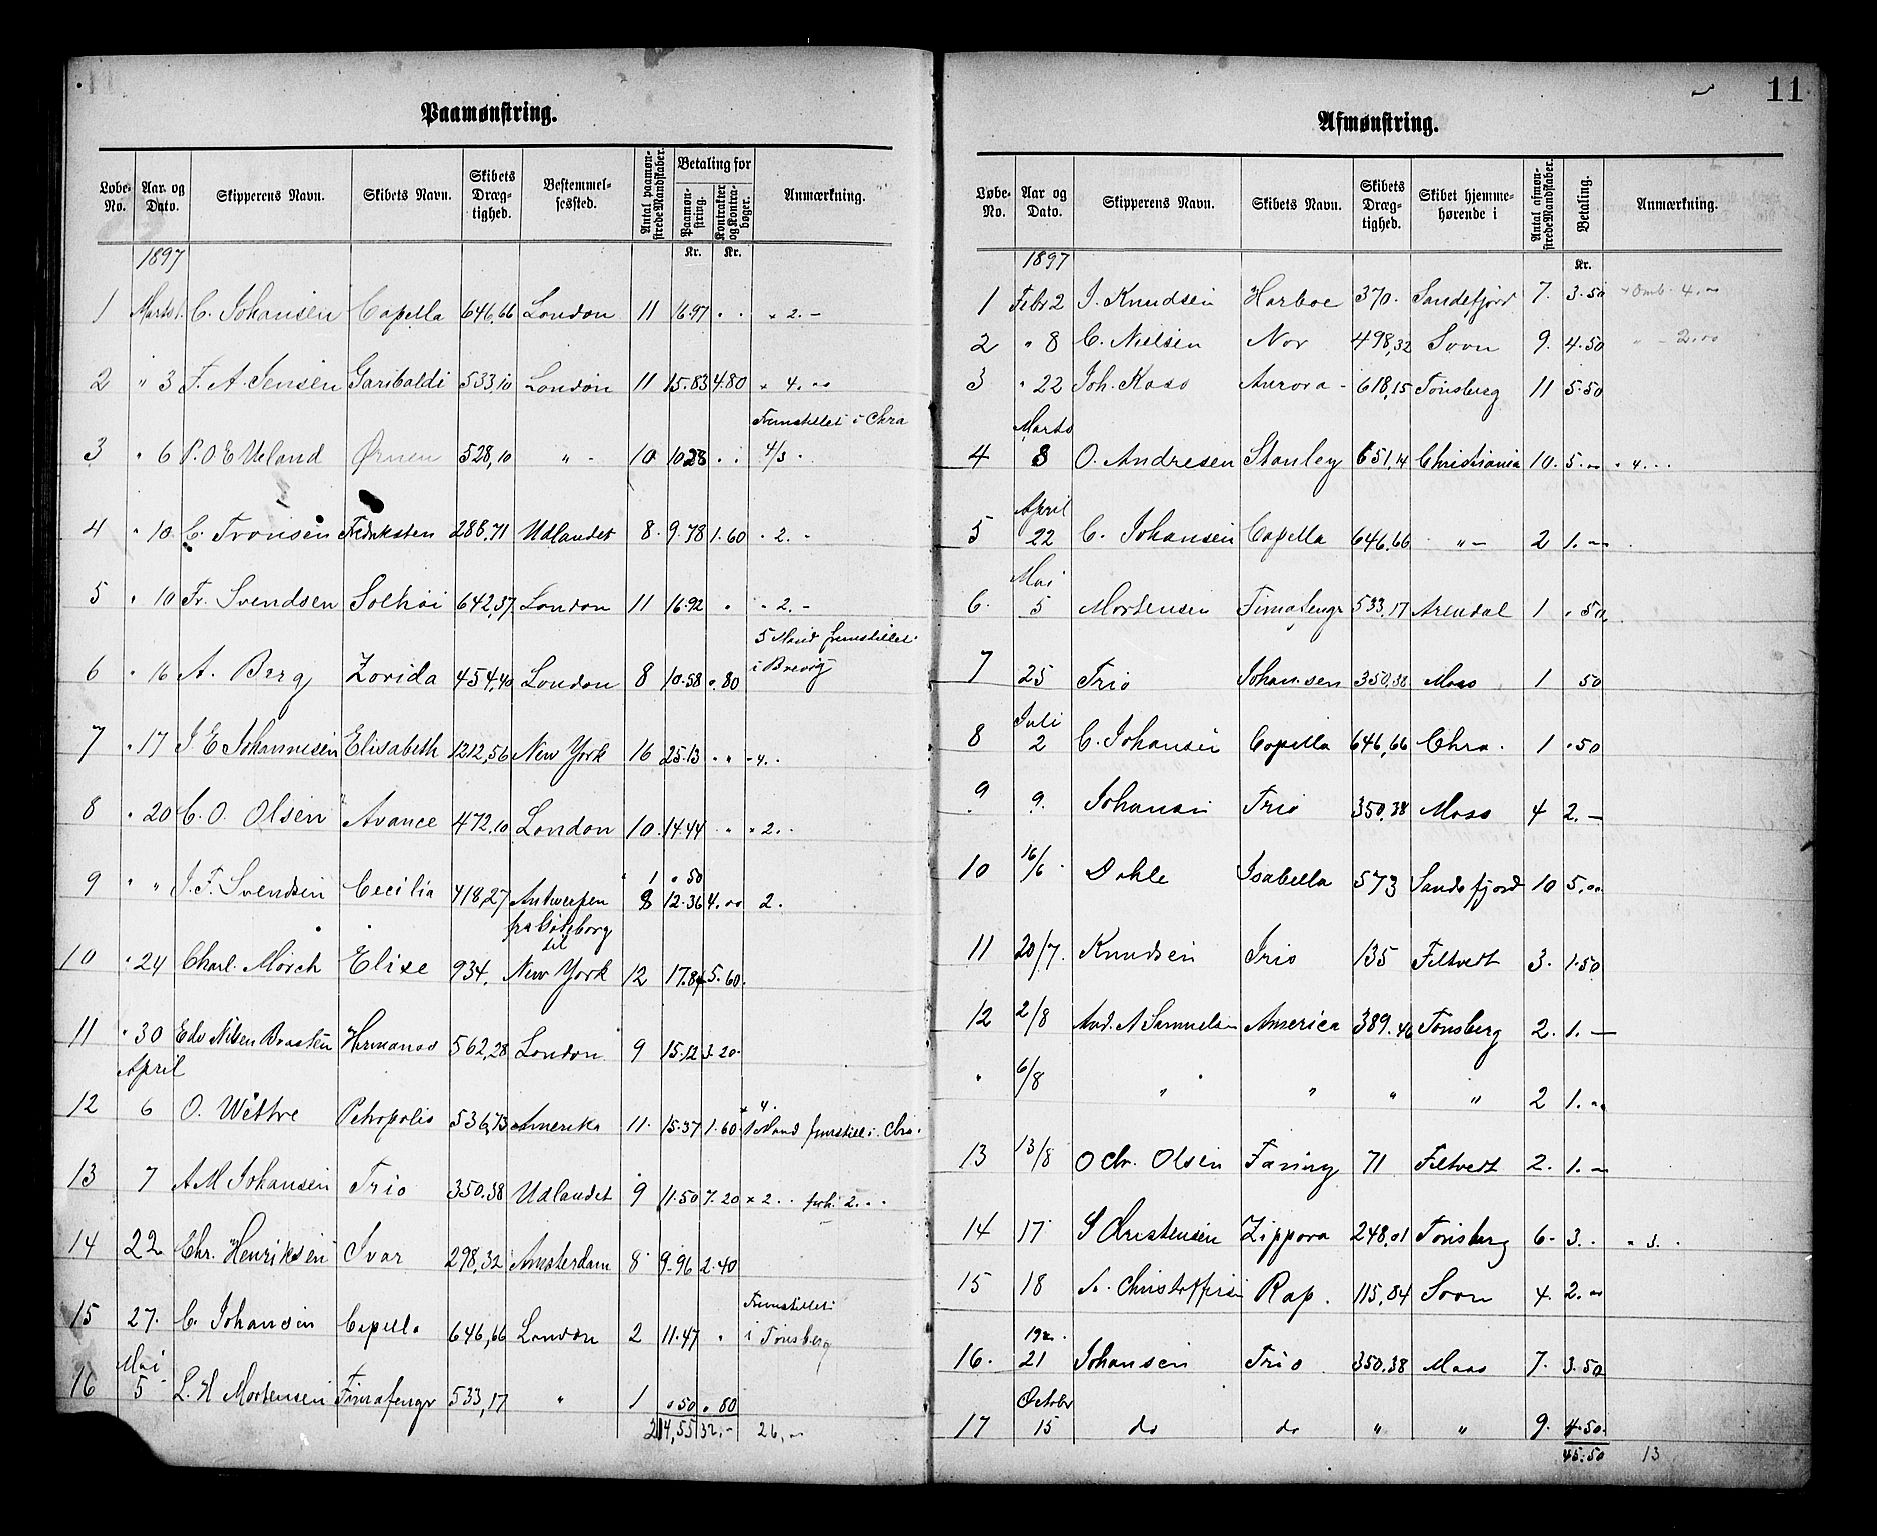 Paamønstring.
Løbe-No. | Aar og Dato. | Skipperens Navn. | Skibets Navn. | Skibets Dræg-tighed. | Bestemmel-sessted. | Antal paamøn-strede Mandskaber. | Betaling for Paamøn-string. | Kontrakter og Kontra-bøger. | Anmærkning.
1897 Kr. Kr.
1 Marts 1. C. Johansen Capella 646,66 London 11 16.97 " " " 2. -
2 " 3 F. A. Jensen Garibaldi 533,10 London 11 15.83 4.80 " 4. "
Fremstillet i Chra
3 " 6 P. O E Ueland Ørnen 528,10 " - 10 10 28 " " 4/3 -
4 " 10. C. Tronsen Fredriksten 288,71 Udlandet 8. 9.78 1.60 " 2. -
5 " 10 Fr. Svendsen Solhøi 642,37 London 11 16.92 " " 2. -
5 Mand fremstillet
6 " 16 A. Berg Zorida 454,40 London 8 10.58 ". 80 i Brevig
7 " 17 J E Johannesen Elisabeth 1212,56 New York 16 25.13 " " " 4. "
8 " 20 C. O. Olsen Avance 472,10 London 10. 14.44 " " " 2. "
" 1 " 50
9 " " J. F. Svendsen Cecilia 418,27 Antwerpen 8 12.36 4. " 2.
fra Göteborg til
10 " 24 Charl. Mörch Elise 934. New York 12 17.84 5.60
11 " 30 Edv Nilsen Braaten Hermanos 562,28 London 9 15.12 3.20
April
" 4.
12 6 O. Wettre Petropolis 536,73 Amerika 11. 15.37 1.60 1 Mand fremstill i Chra.
13 7 A M Johansen Trio 350,38 Udlandet 9 11.50 7.20 " 2. "
14 22 Chr. Henriksen Ivar 298,32 Amsterdam 8 9.96 2.40
Fremstillet
15 27. C. Johansen Capella 646,66 London 2 11.47 " i Tønsberg
Mai
16 5 L. H Mortensen Fimafengr 533,17 " 1 " 50 " 80
214,55 32,- 26,"
11
Afmønstring.
Løbe-No. | Aar og Dato. | Skipperens Navn. | Skibets Navn. | Skibets Dræg-tighed. | Skibet hjemme-hørende i | Antal afmøn-strede Mandskaber. | Betaling. | Anmærkning.
1897 Kr.
1 Febr 2 J. Knudsen Harboe 370. Sandefjord 7. 3.50 + Omb. 4. "
2 " 8 C. Nielsen Nor 498,32 Soon 9. 4.50 " - 2. "
3 " 22 Joh. Kass Aurora - 618,15 Tønsberg 11 5.50
Marts
4 8 O. Andresen Stanley 651,14 Christiania 10. 5. " " 4. "
April
5 22 C. Johansen Capella 646,66 " - 2 1. "
Mai
6. 5 Mortensen Fimafengr 533,17 Arendal 1 " 50
7 25 Trio Johansen 350,38 Moss 1 50
Juli
8 2 C. Johansen Capella 646,66 Chra. 1 " 50
9 9. Johansen Trio 350,38 Moss 4 2. -
10 16/6 Dahle Isabella 573 Sandefjord 10 5. "
11 20/7. Knudsen Trio 135 Filtvedt 3. 1.50
12 2/8 And. A Samuelsen America 389.46 Tønsberg 2. 1. -
" 6/8 " " " " 2 1. "
13 13/8 O Chr. Olsen Fanny 71 Filtvedt 2. 1. -
14 17 S Christensen Zippora 248,01 Tønsberg 6. 3. " " 3. "
15 18 A. Christoffersen Rap. 115,84 Soon 4. 2. "
16. 21 Johansen Trio 350.38 Moss 7. 3.50
October
17 15 do do " " 9. 4.50
45.50 13